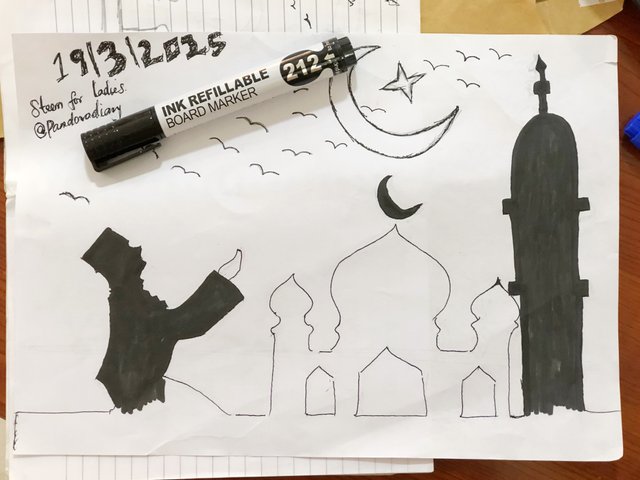 19/3/2025
Steem for Ladies.
@Pandoradiary
INK REFILLABLE 212
BOARD MARKER